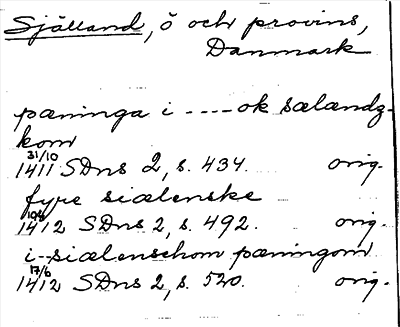 Själland, ö och provins,
Danmark
pæninga i ---- ok sælandz-
kom
31/10
1411 SDns 2, s. 434. orig.
fyre siælenske
10/8
1412 SDns 2, s. 492. orig.
i -- siælenschom pæningom
17/6
1412 SDns 2, s. 520. orig.